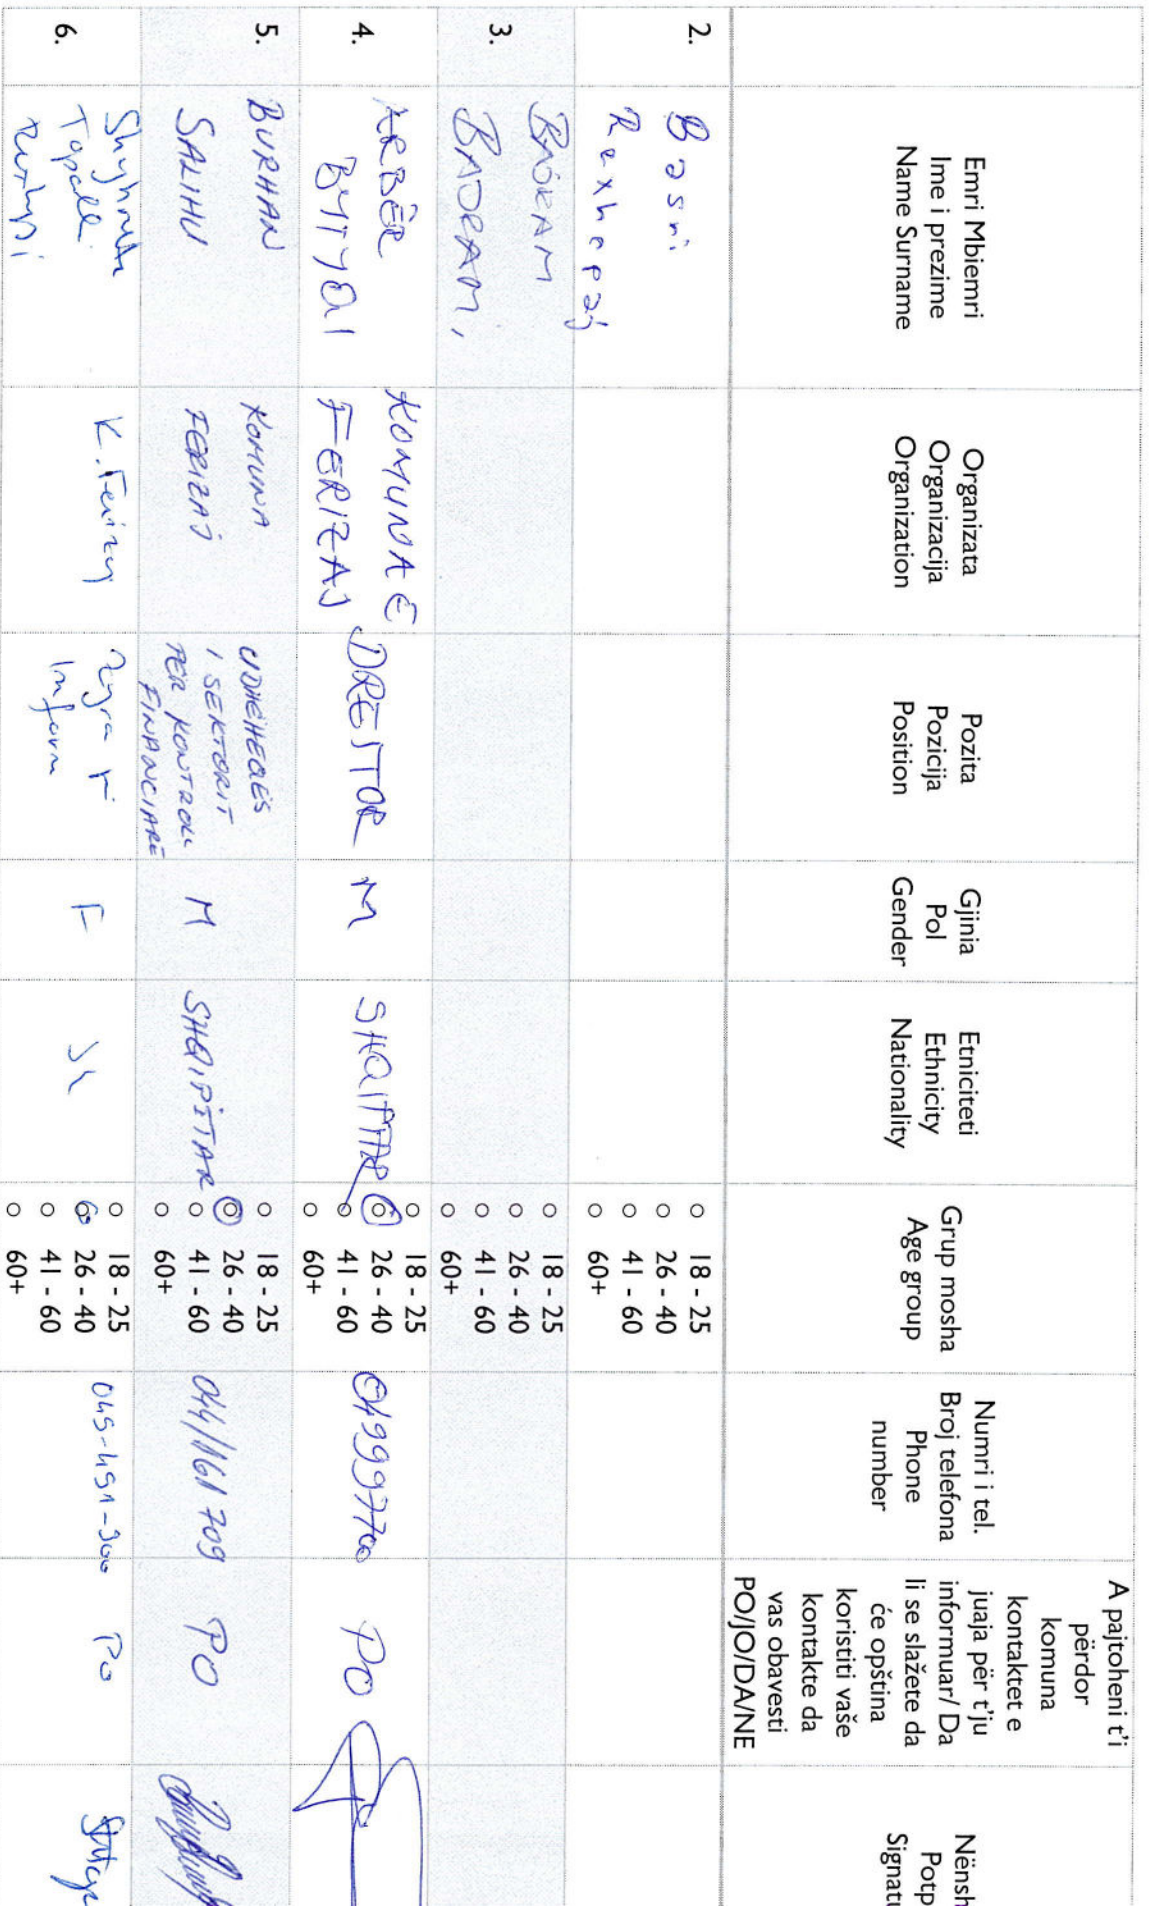 Emri Mbiemri
Ime i prezime
Name Surname
Organizata
Organizacija
Organization
Pozita
Pozicija
Position
Gjinia
Pol
Gender
Etniciteti
Ethnicity
Nationality
Grup mosha
Age group
Numri i tel.
Broj telefona
Phone
number
A pajtoheni t'i
përdor
komuna
kontaktet e
juaja për t'ju
informuar/ Da
li se slažete da
će opština
koristiti vaše
kontakte da
vas obavesti
PO/JO/DA/NE
Nënsh
Potp
Signatu
2.
Basri
Rexhepaj
18 - 25
26 - 40
41 - 60
60+
3.
BAJRAM
BAJRAMI
18 - 25
26 - 40
41 - 60
60+
4.
ARBËR
BYTYQI
KOMUNA E
FERIZAJ
DREJTOR
M
SHQIPTAR
18 - 25
26 - 40
41 - 60
60+
PO
5.
BURHAN
SALIHU
KOMUNA
FERIZAJ
UDHËHEQËS
I SEKTORIT
PËR KONTROLL
FINANCIARË
M
SHQIPTAR
18 - 25
26 - 40
41 - 60
60+
044/161 709
PO
6.
Topalli
K. Ferizaj
Zyra
Inform
F
Sh
18 - 25
26 - 40
41 - 60
60+
Po